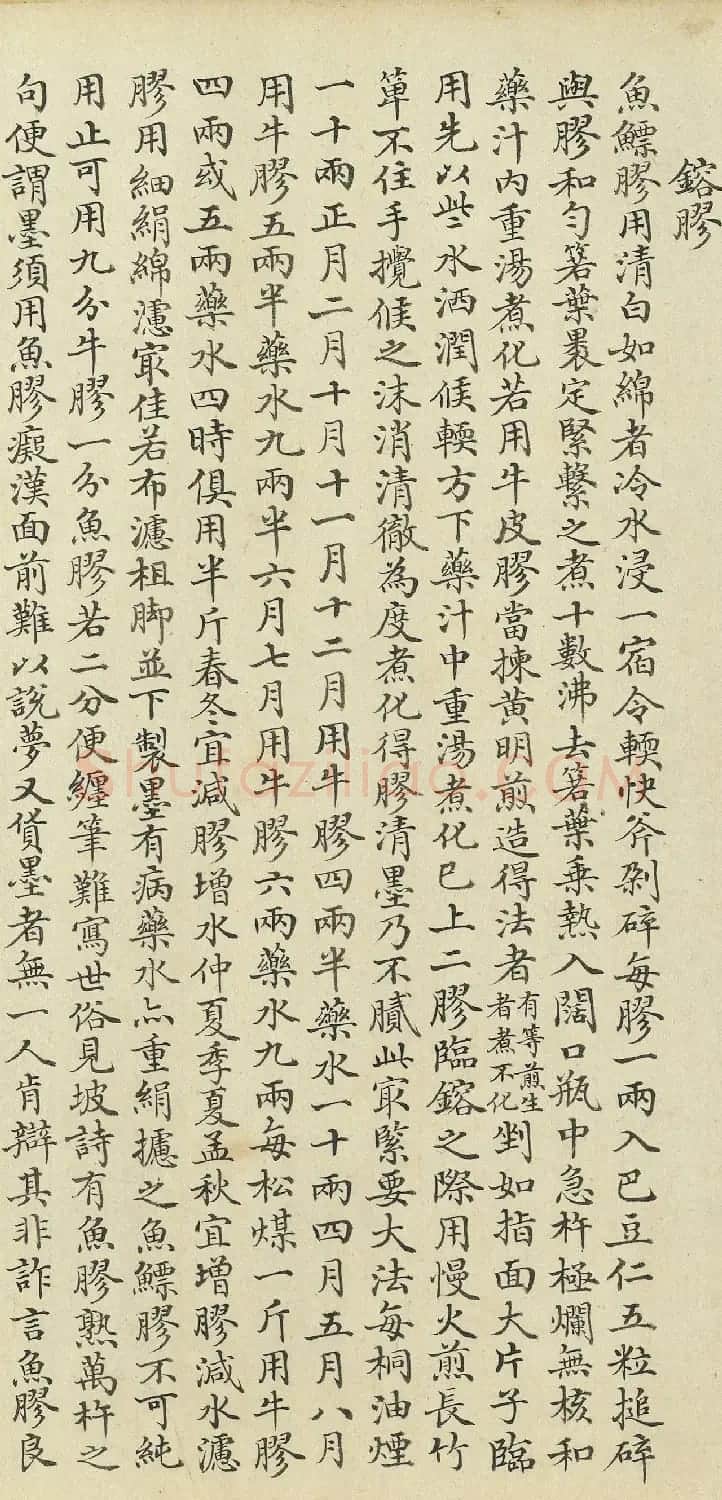 鎔膠
魚鰾膠用清白如綿者冷水浸一宿令輭快斧剁碎每膠一兩入巴豆仁五粒搥碎
與膠和勻箬葉褁定緊繫之煮十數沸去箬葉乗熱入闊口瓶中急杵極爛無核和
藥汁内重湯煮化若用牛皮膠當揀黄明煎造得法者有等煎生者煮不化剉如指面大片子臨
用先以些水洒潤候輭方下藥汁中重湯煮化已上二膠臨鎔之際用慢火煎長竹
箄不住手攪候之沫消清徹為度煮化得膠清墨乃不膩此冣緊要大法每桐油煙
一十兩正月二月十月十一月十二月用牛膠四兩半藥水一十兩四月五月八月
用牛膠五兩半藥水九兩半六月七月用牛膠六兩藥水九兩每松煤一斤用牛膠
四兩或五兩藥水四時俱用半斤春冬宜減膠增水仲夏季夏孟秋宜增膠減水濾
膠用細絹綿濾冣佳若布濾柤脚並下製墨有病藥水亦重絹攄之魚鰾膠不可純
用止可用九分牛膠一分魚膠若二分便纏筆難寫世俗見坡詩有魚膠熟萬杵之
句便謂墨須用魚膠癡漢面前難以說夢又貨墨者無一人肯辯其非詐言魚膠良
shufaziliao.COM